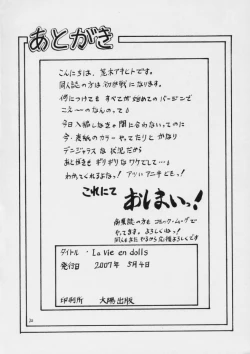 あとがき
こんにちは、荒木アキヒトです。
同人誌の方は初参戦になります。
何につけても すべてが始めてのバージンで
今日入稿しなきゃ間に合わないってのに
今、表紙のカラーやってたりとかなり
デンジャラスな状況だから
あとがきもギリギリなワケでして…♪
これにて おしまいっ！
やってます。よろしくねっ！
タイトル・La vie en dolls
発行日 2007年 5月4日
印刷所 大陽出版